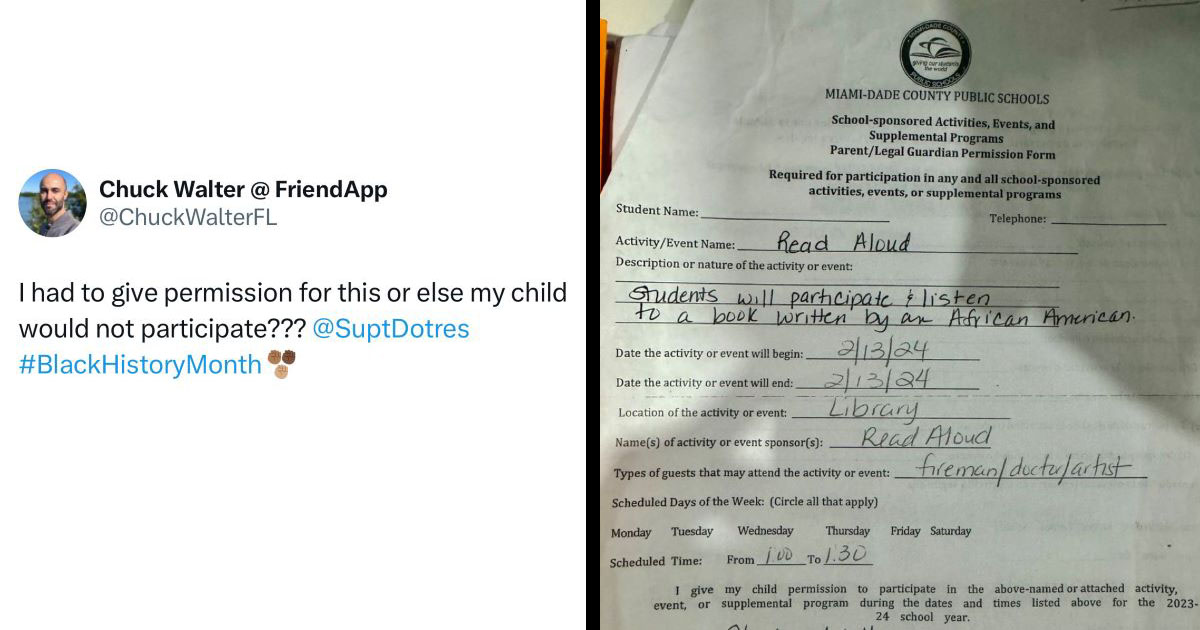 Chuck Walter @ FriendApp
@ChuckWalterFL
I had to give permission for this or else my child
would not participate??? @SuptDotres
#BlackHistoryMonth
MIAMI-DADE COUNTY PUBLIC SCHOOLS
giving our students
the world
PUBLIC SCHOOLS
MIAMI-DADE COUNTY PUBLIC SCHOOLS
School-sponsored Activities, Events, and
Supplemental Programs
Parent/Legal Guardian Permission Form
Required for participation in any and all school-sponsored
activities, events, or supplemental programs
Student Name: Telephone:
Activity/Event Name: Read Aloud
Description or nature of the activity or event:
Students will participate & listen
to a book written by an African American.
Date the activity or event will begin: 2/13/24
Date the activity or event will end: 2/13/24
Location of the activity or event: Library
Name(s) of activity or event sponsor(s): Read Aloud
Types of guests that may attend the activity or event: fireman/doctor/artist
Scheduled Days of the Week: (Circle all that apply)
Monday Tuesday Wednesday Thursday Friday Saturday
Scheduled Time: From 1:00 To 1:30
I give my child permission to participate in the above-named or attached activity,
event, or supplemental program during the dates and times listed above for the 2023-
24 school year.